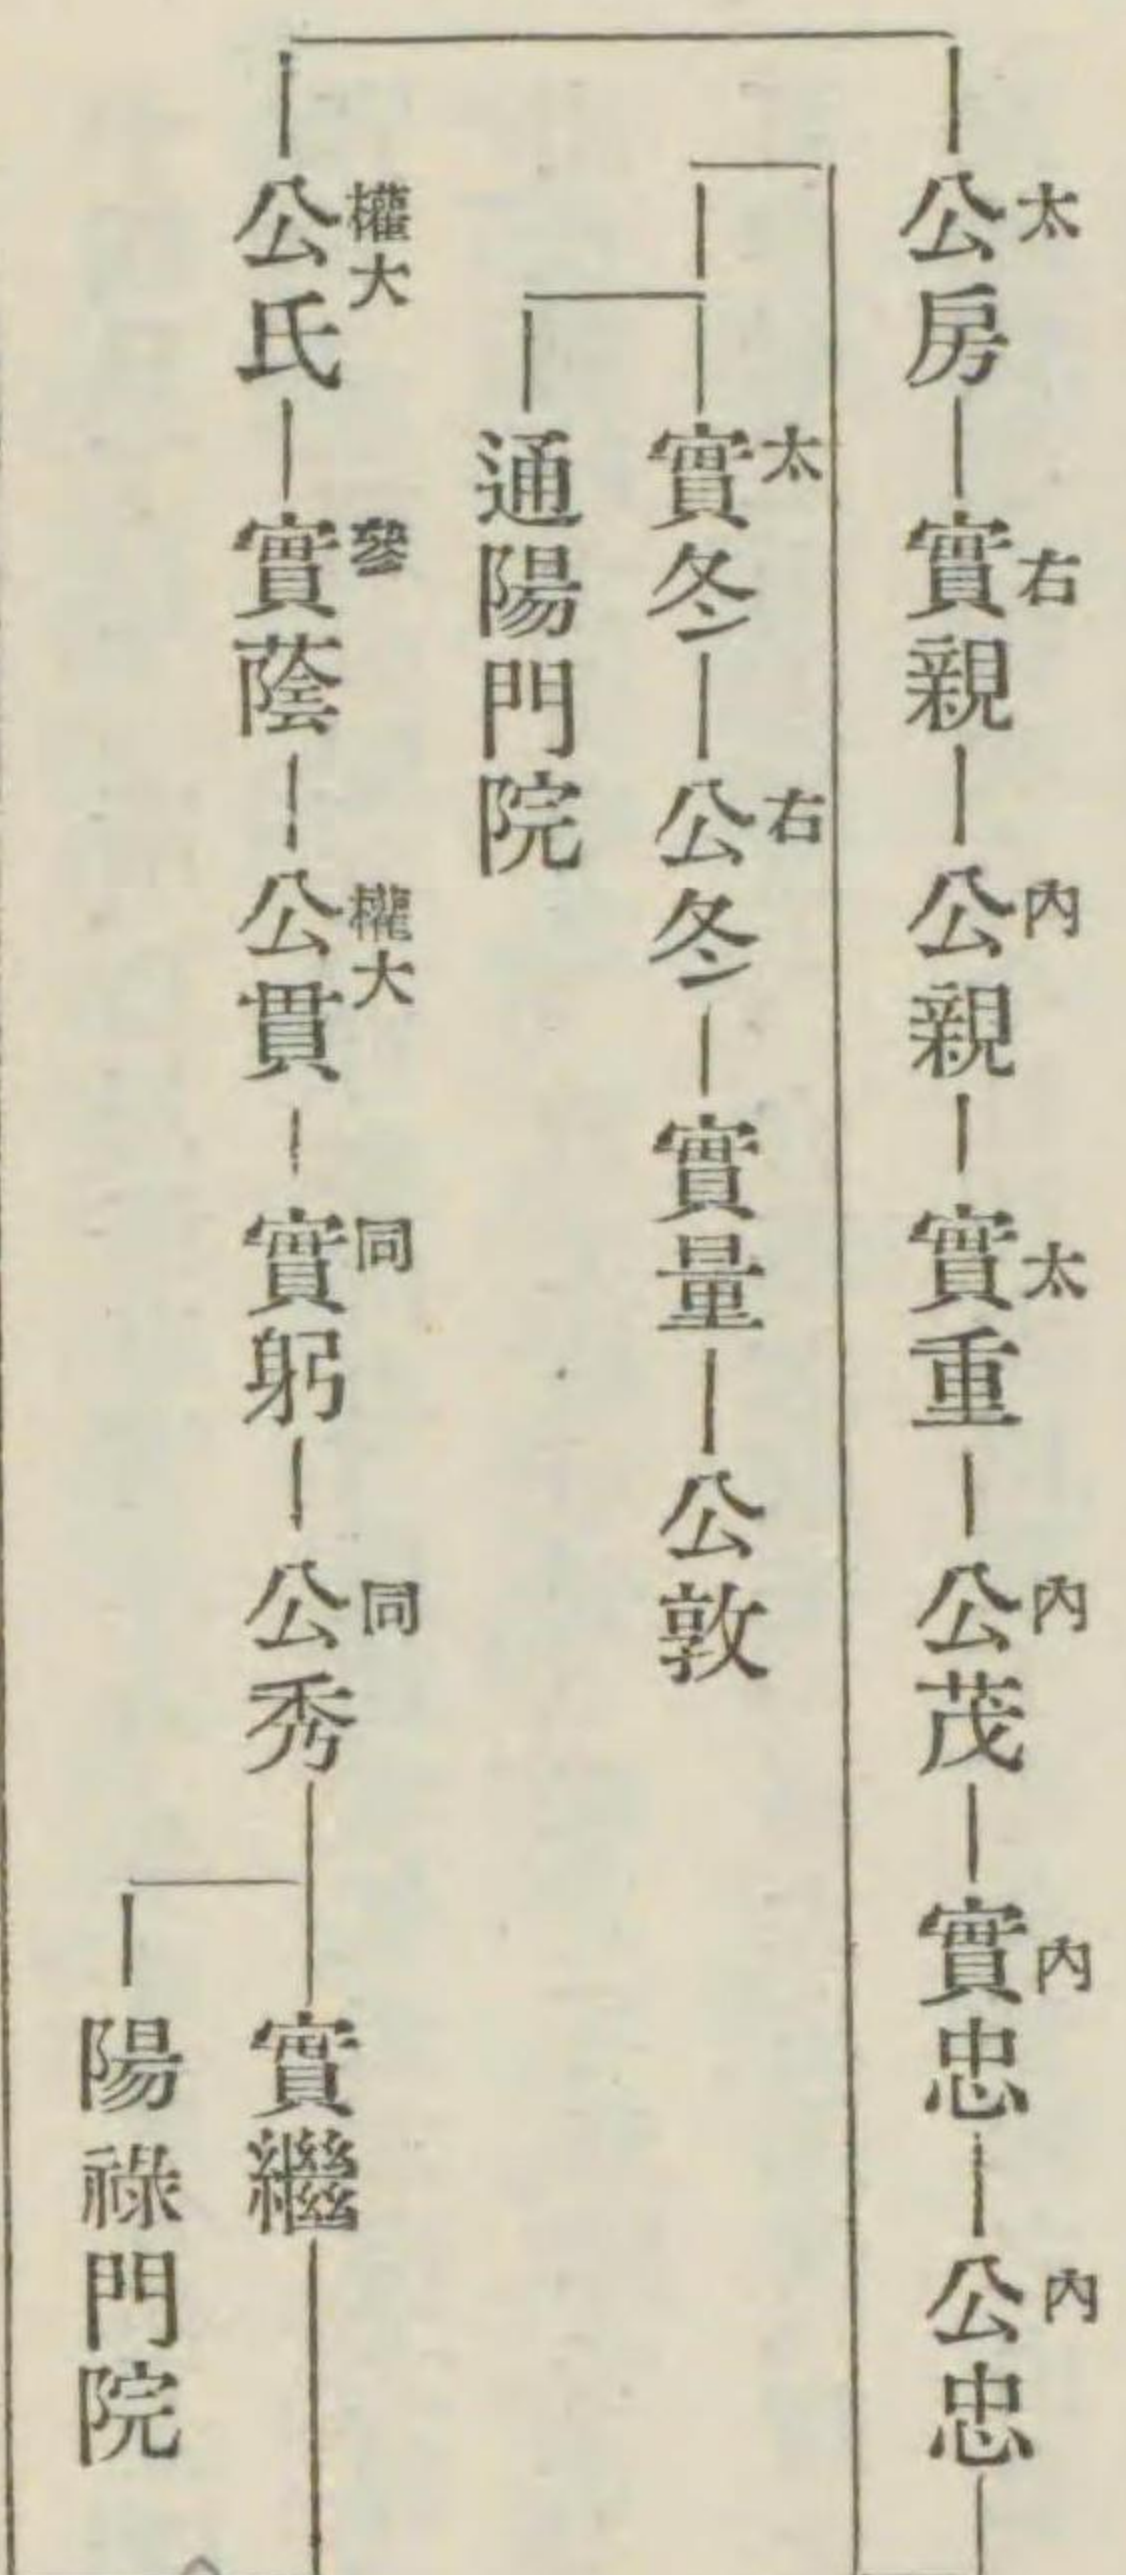 太
公房
右
實親
內
公親
太
實重
內
公茂
內
實忠
內
公忠
太
實冬
右
公冬
實量
公敦
通陽門院
權大
公氏
參
實蔭
權大
公貫
同
實躬
同
公秀
實繼
陽祿門院